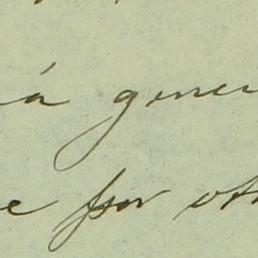 rá gener
e por ot